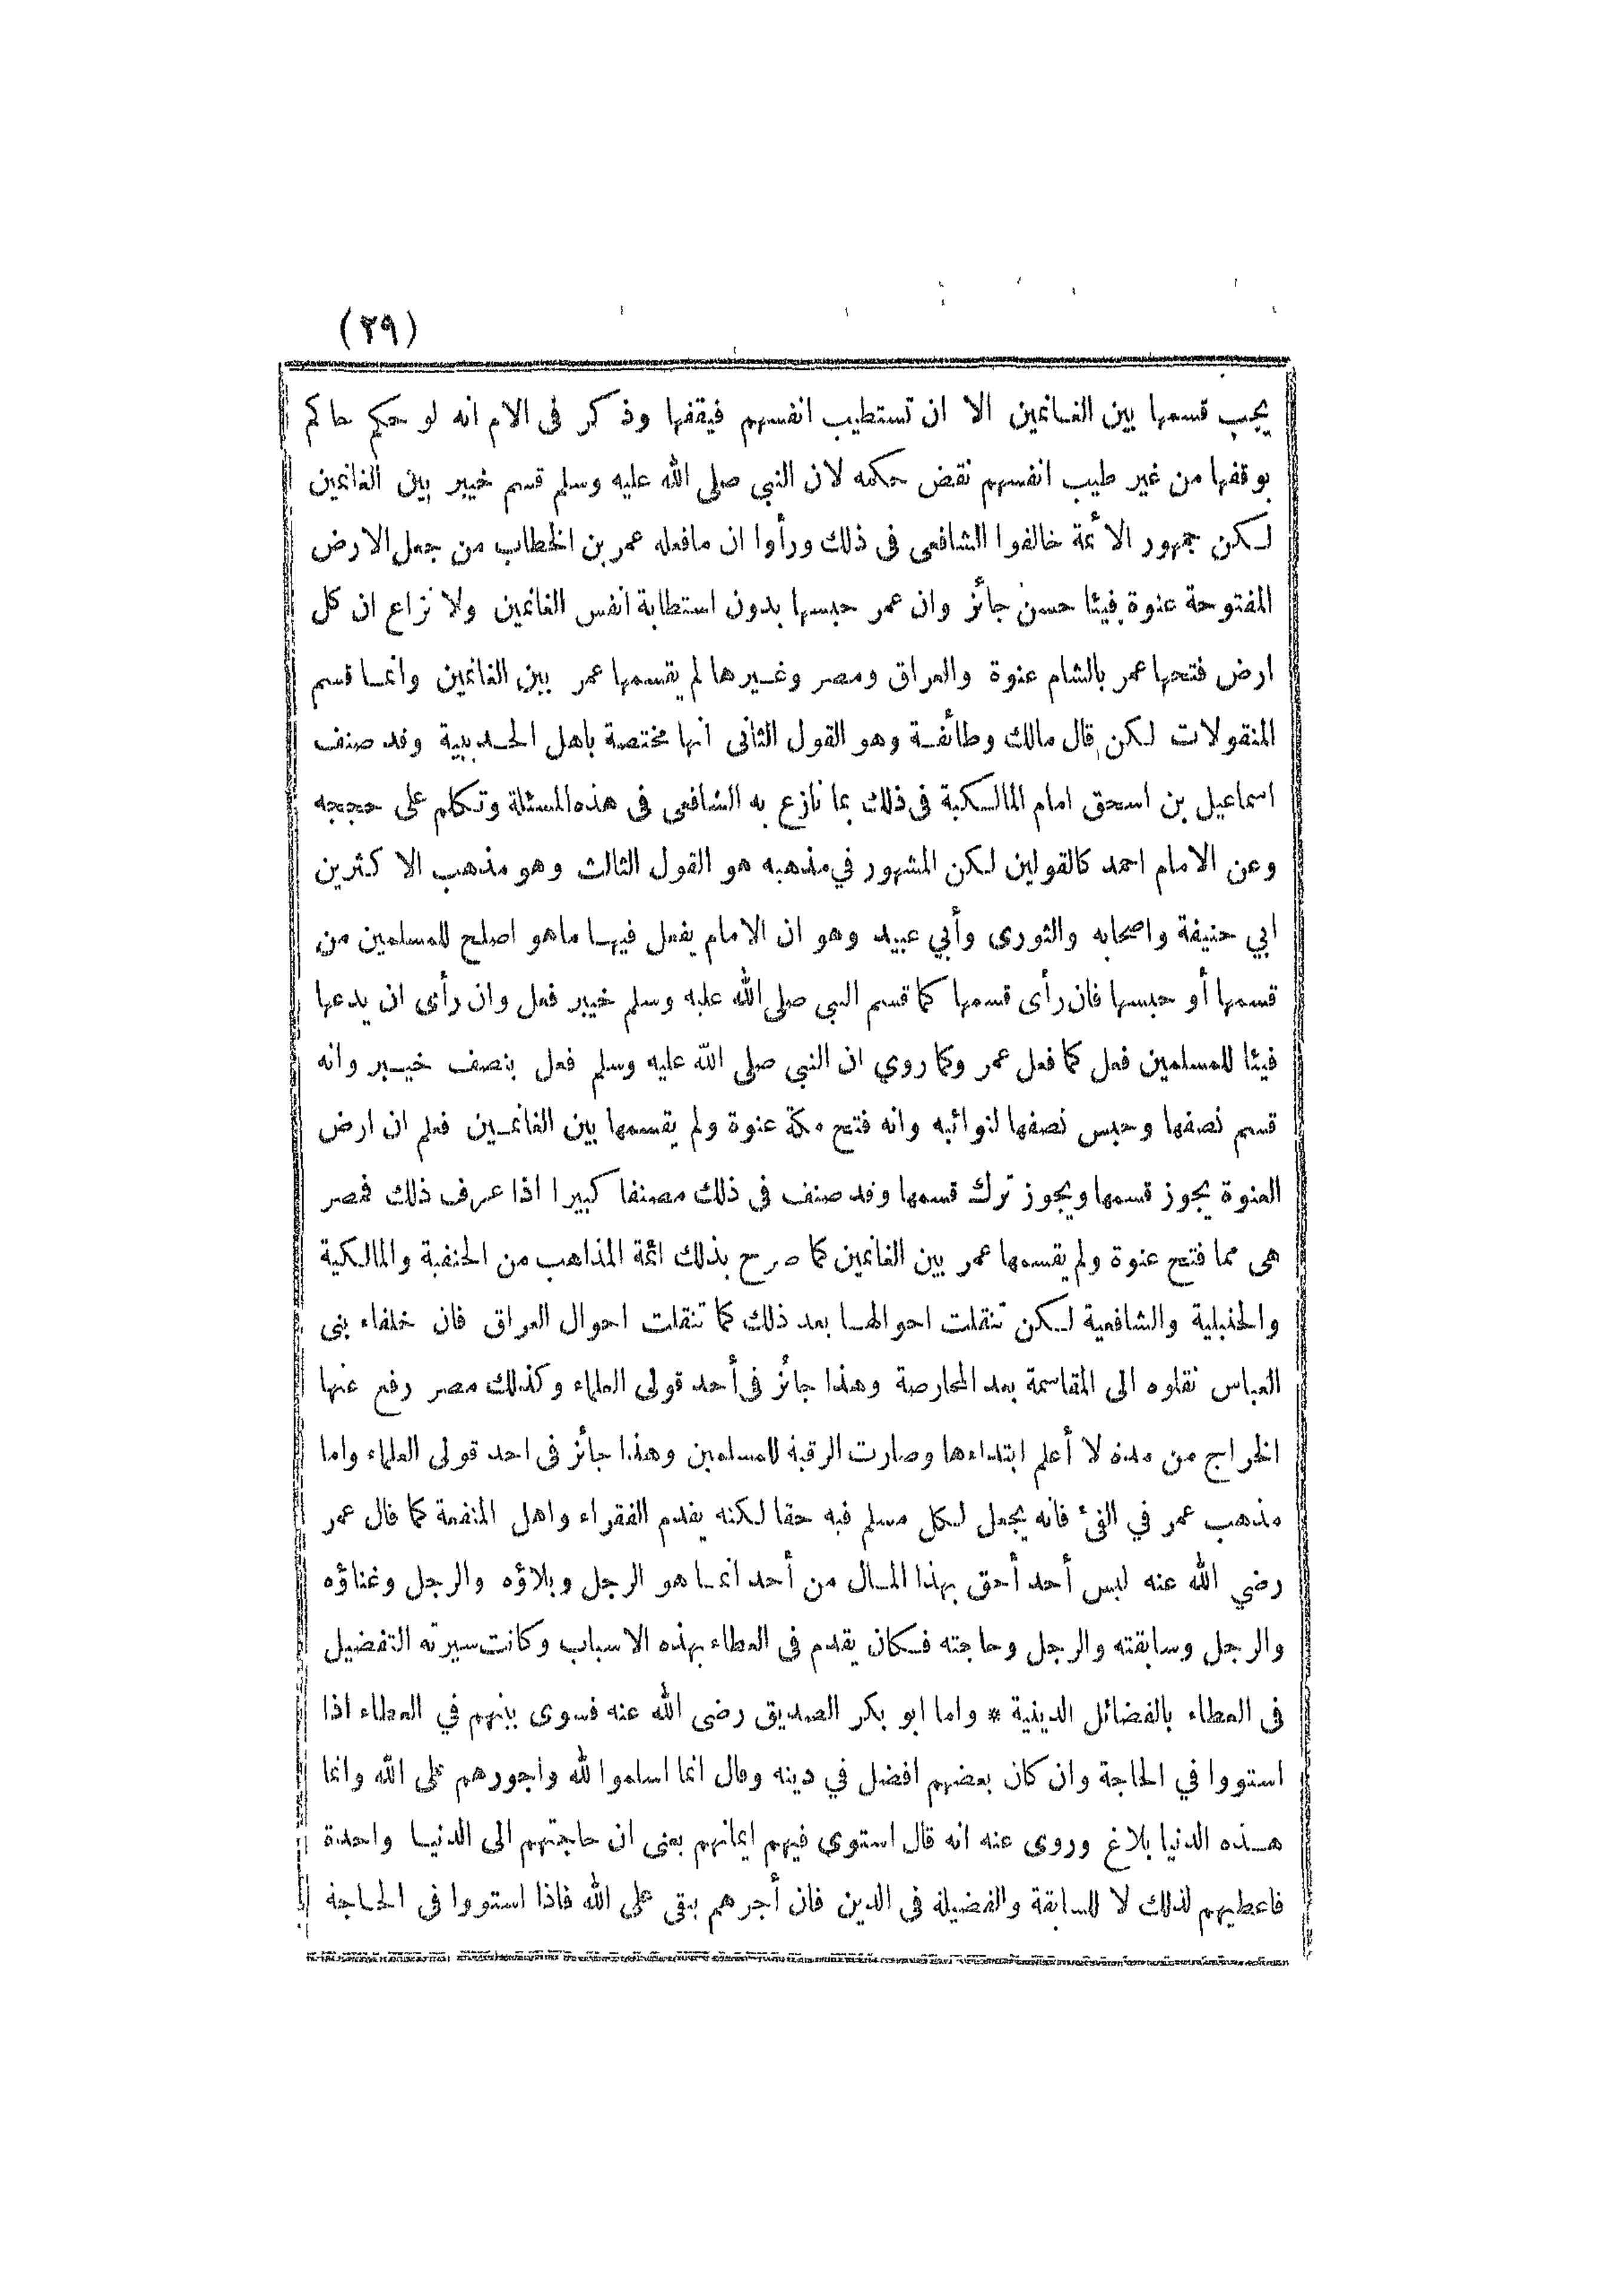 (٢٩)
يجب قسمها بين الغانمين الا ان تستطيب انفسهم فيقفها وذكر فى الام انه لو حكم حاكم
بوقفها من غير طيب انفسهم نقض حكمه لان النبي صلى الله عليه وسلم قسم خيبر بين الغانمين
لكن جمهور الائمة خالفوا الشافعى فى ذلك ورأوا ان مافعله عمر بن الخطاب من جعل الارض
المفتوحة عنوة فيئا حسن جائز وان عمر حبسها بدون استطابة انفس الغانمين ولا نزاع ان كل
ارض فتحها عمر بالشام عنوة والعراق ومصر وغيرها لم يقسمها عمر بين الغانمين وانما قسم
المنقولات لكن قال مالك وطائفة وهو القول الثانى انها مختصة باهل الحديبية وقد صنف
اسماعيل بن اسحق امام المالكية فى ذلك بما نازع به الشافعى فى هذه المسئلة وتكلم على حججه
وعن الامام احمد كالقولين لكن المشهور في مذهبه هو القول الثالث وهو مذهب الاكثرين
ابي حنيفة واصحابه والثورى وأبي عبيد وهو ان الامام يفعل فيها ماهو اصلح للمسلمين من
قسمها أو حبسها فان رأى قسمها كما قسم النبى صلى الله عليه وسلم خيبر فعل وان رأى ان يدعها
فيئا للمسلمين فعل كما فعل عمر وكما روي ان النبي صلى الله عليه وسلم فعل بنصف خيبر وانه
قسم نصفها وحبس نصفها لنوائبه وانه فتح مكة عنوة ولم يقسمها بين الغانمين فعلم ان ارض
العنوة يجوز قسمها ويجوز ترك قسمها وقد صنف فى ذلك مصنفا كبيرا اذا عرف ذلك فمصر
هى مما فتح عنوة ولم يقسمها عمر بين الغانمين كما صرح بذلك ائمة المذاهب من الحنفية والمالكية
والحنبلية والشافعية لكن تنقلت احوالها بعد ذلك كما تنقلت احوال العراق فان خلفاء بنى
العباس نقلوه الى المقاسمة بعد المخارصة وهذا جائز فى أحد قولى العلماء وكذلك مصر رفع عنها
الخراج من مدة لا أعلم ابتداءها وصارت الرقبة للمسلمين وهذا جائز فى احد قولى العلماء واما
مذهب عمر في الفئ فانه يجعل لكل مسلم فيه حقا لكنه يقدم الفقراء واهل المنفعة كما قال عمر
رضي الله عنه ليس أحد أحق بهذا المال من أحد انما هو الرجل وبلاؤه والرجل وغناؤه
والرجل وسابقته والرجل وحاجته فكان يقدم فى العطاء بهذه الاسباب وكانت سيرته التفضيل
فى العطاء بالفضائل الدينية * واما ابو بكر الصديق رضى الله عنه فسوى بينهم في العطاء اذا
استووا في الحاجة وان كان بعضهم افضل في دينه وقال انما اسلموا لله واجورهم على الله وانما
هذه الدنيا بلاغ وروى عنه انه قال استوى فيهم ايمانهم يعنى ان حاجتهم الى الدنيا واحدة
فاعطيهم لذلك لا للسابقة والفضيلة فى الدين فان أجرهم يبقى على الله فاذا استووا فى الحاجة